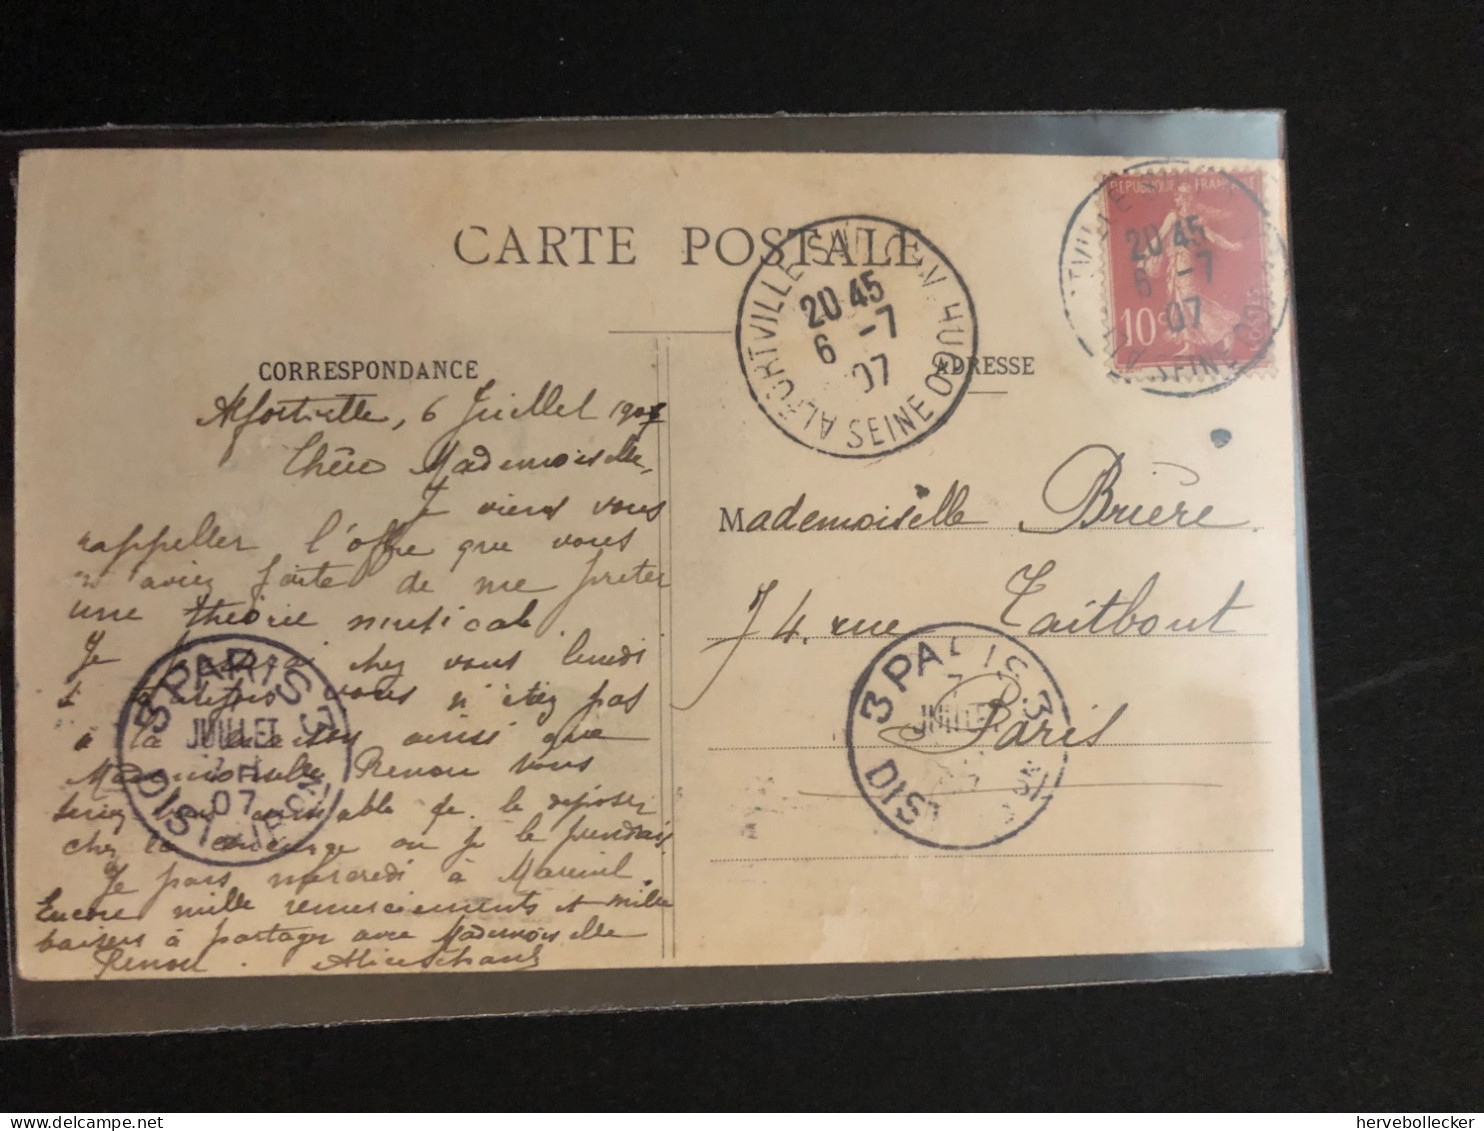 CARTE POSTALE
CORRESPONDANCE
ADRESSE
ALFORTVILLE SEINE
20 45
6 -7
07
REPUBLIQUE FRANÇAISE
10 c
20 45
6 -7
07
Alfortville, 6 Juillet 1907
Chère Mademoiselle,
Je viens vous
rappeller l'offre que vous
m'aviez faite de me preter
une théorie musicale.
Je chez vous lundi
si vous n'étiez pas
à la maison ainsi que
Mademoiselle Renou vous
seriez bien aimable de le déposer
chez la concierge ou je le prendrais
Je pars mercredi à Mareuil.
Encore mille remerciements et mille
baisers à partager avec Mademoiselle
Renou.
Mademoiselle Brière
74, rue Taitbout
Paris
3 PARIS 3
JUILLET
07
DISTRIBUTION
3 PARIS 3
7
JUILLET
DIS
hervebollecker